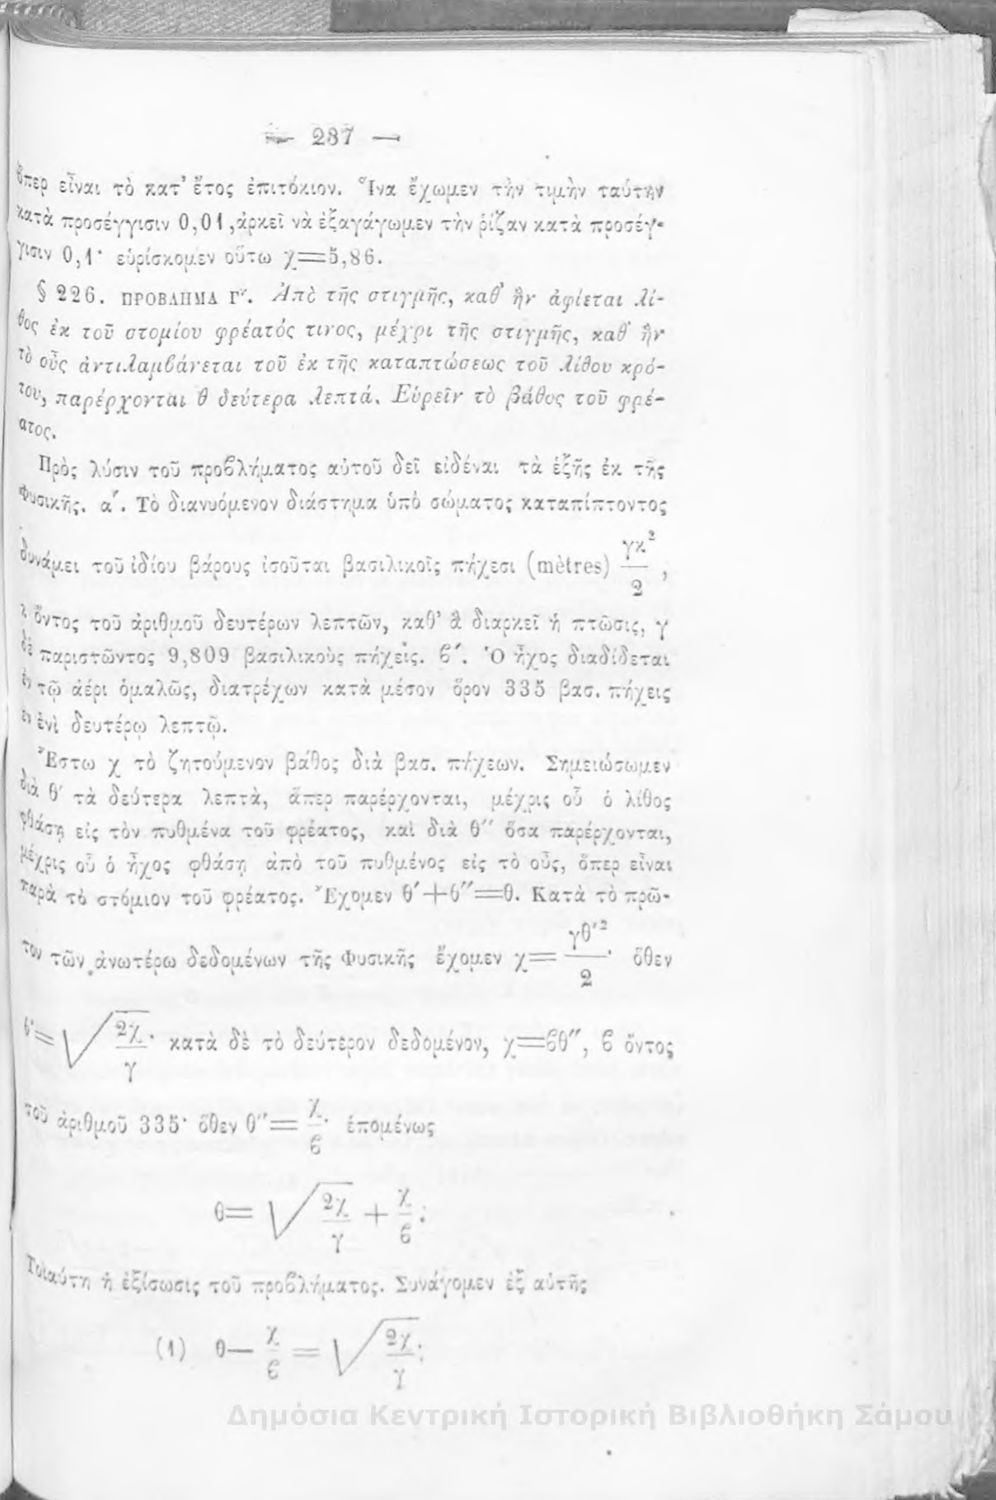 — 287 —
ὅπερ εἶναι τὸ κατ’ ἔτος ἐπιτόκιον. Ἵνα ἔχωμεν τὴν τιμὴν ταύτην
κατὰ προσέγγισιν 0,01, ἀρκεῖ νὰ ἐξαγάγωμεν τὴν ῥίζαν κατὰ προσέγ-
γισιν 0,1· εὑρίσκομεν οὕτω χ=5,86.
§ 226. ΠΡΟΒΛΗΜΑ Γ′. Ἀπὸ τῆς στιγμῆς, καθ’ ἣν ἀφίεται λί-
θος ἐκ τοῦ στομίου φρέατός τινος, μέχρι τῆς στιγμῆς, καθ’ ἣν
τὸ οὖς ἀντιλαμβάνεται τοῦ ἐκ τῆς καταπτώσεως τοῦ λίθου κρό-
του, παρέρχονται θ δεύτερα λεπτά. Εὑρεῖν τὸ βάθος τοῦ φρέ-
ατος.
Πρὸς λύσιν τοῦ προβλήματος αὐτοῦ δεῖ εἰδέναι τὰ ἑξῆς ἐκ τῆς
Φυσικῆς. α′. Τὸ διανυόμενον διάστημα ὑπὸ σώματος καταπίπτοντος
δυνάμει τοῦ ἰδίου βάρους ἰσοῦται βασιλικοῖς πήχεσι (mètres) γκ²/2 ,
κ ὄντος τοῦ ἀριθμοῦ δευτέρων λεπτῶν, καθ’ ἃ διαρκεῖ ἡ πτῶσις, γ
δὲ παριστῶντος 9,809 βασιλικοὺς πήχεις. β′. Ὁ ἦχος διαδίδεται
ἐν τῷ ἀέρι ὁμαλῶς, διατρέχων κατὰ μέσον ὅρον 335 βασ. πήχεις
ἐν ἑνὶ δευτέρῳ λεπτῷ.
Ἔστω χ τὸ ζητούμενον βάθος διὰ βασ. πήχεων. Σημειώσωμεν
διὰ θ′ τὰ δεύτερα λεπτὰ, ἅπερ παρέρχονται, μέχρις οὗ ὁ λίθος
φθάσῃ εἰς τὸν πυθμένα τοῦ φρέατος, καὶ διὰ θ″ ὅσα παρέρχονται,
μέχρις οὗ ὁ ἦχος φθάσῃ ἀπὸ τοῦ πυθμένος εἰς τὸ οὖς, ὅπερ εἶναι
παρὰ τὸ στόμιον τοῦ φρέατος. Ἔχομεν θ′+θ″=θ. Κατὰ τὸ πρῶ-
τον τῶν ἀνωτέρω δεδομένων τῆς Φυσικῆς ἔχομεν χ= γθ′²/2· ὅθεν
θ′= √2χ/γ· κατὰ δὲ τὸ δεύτερον δεδομένον, χ=βθ″, β ὄντος
τοῦ ἀριθμοῦ 335· ὅθεν θ″= χ/β· ἑπομένως
θ= √2χ/γ + χ/β;
Τοιαύτη ἡ ἐξίσωσις τοῦ προβλήματος. Συνάγομεν ἐξ αὐτῆς
(1) θ— χ/β = √2χ/γ;
Δημόσια Κεντρική Ιστορική Βιβλιοθήκη Σάμου